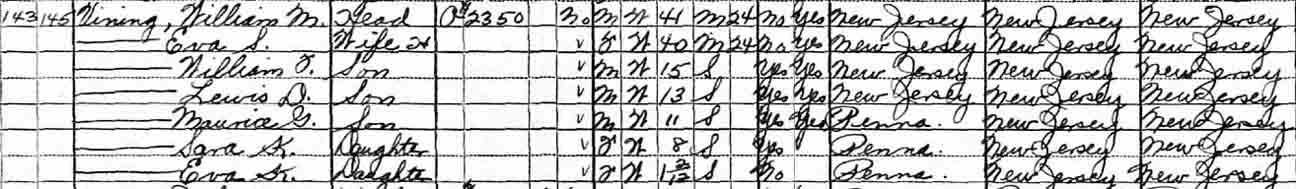 143 145 Vining, William M. Head O $2350 No M W 41 M 24 No Yes New Jersey New Jersey New Jersey
—— Eva S. Wife H V F W 40 M 24 No Yes New Jersey New Jersey New Jersey
—— William F. Son V M W 15 S Yes Yes New Jersey New Jersey New Jersey
—— Lewis D. Son V M W 13 S Yes Yes New Jersey New Jersey New Jersey
—— Maurice G. Son V M W 11 S Yes Yes Penna. New Jersey New Jersey
—— Sara K. Daughter V F W 8 S Yes Penna. New Jersey New Jersey
—— Eva K. Daughter V F W S No Penna. New Jersey New Jersey